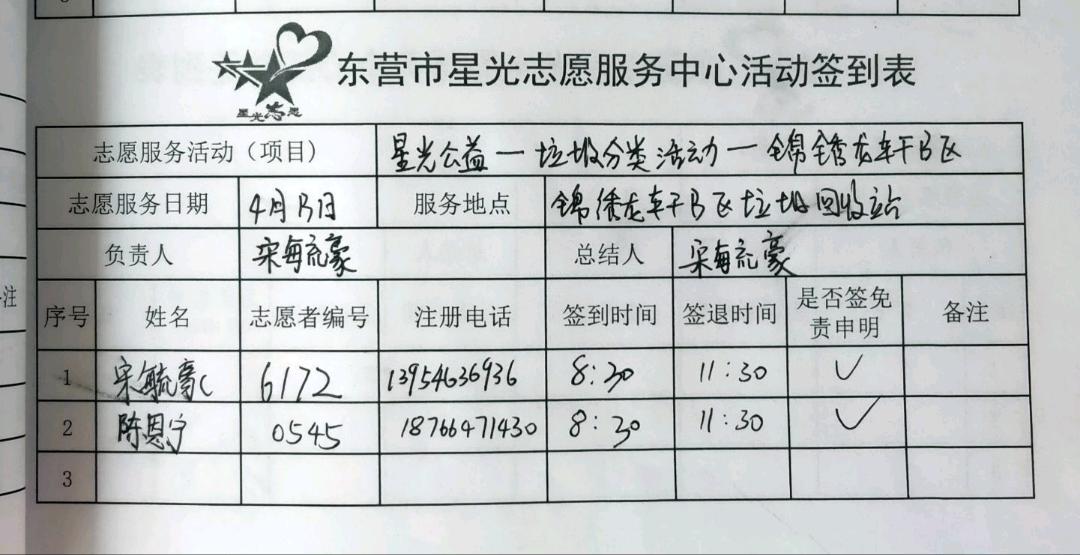 东营市星光志愿服务中心活动签到表
星光志愿
志愿服务活动（项目） 星光公益一垃圾分类活动一锦绣龙轩B区
志愿服务日期 4月13日 服务地点 锦绣龙轩B区垃圾回收站
负责人 宋毓豪 总结人 宋毓豪
序号 姓名 志愿者编号 注册电话 签到时间 签退时间 是否签免责申明 备注
1 宋毓豪 6172 13954636936 8:30 11:30 ✓
2 陈恩宁 0545 18766471430 8:30 11:30 ✓
3
注